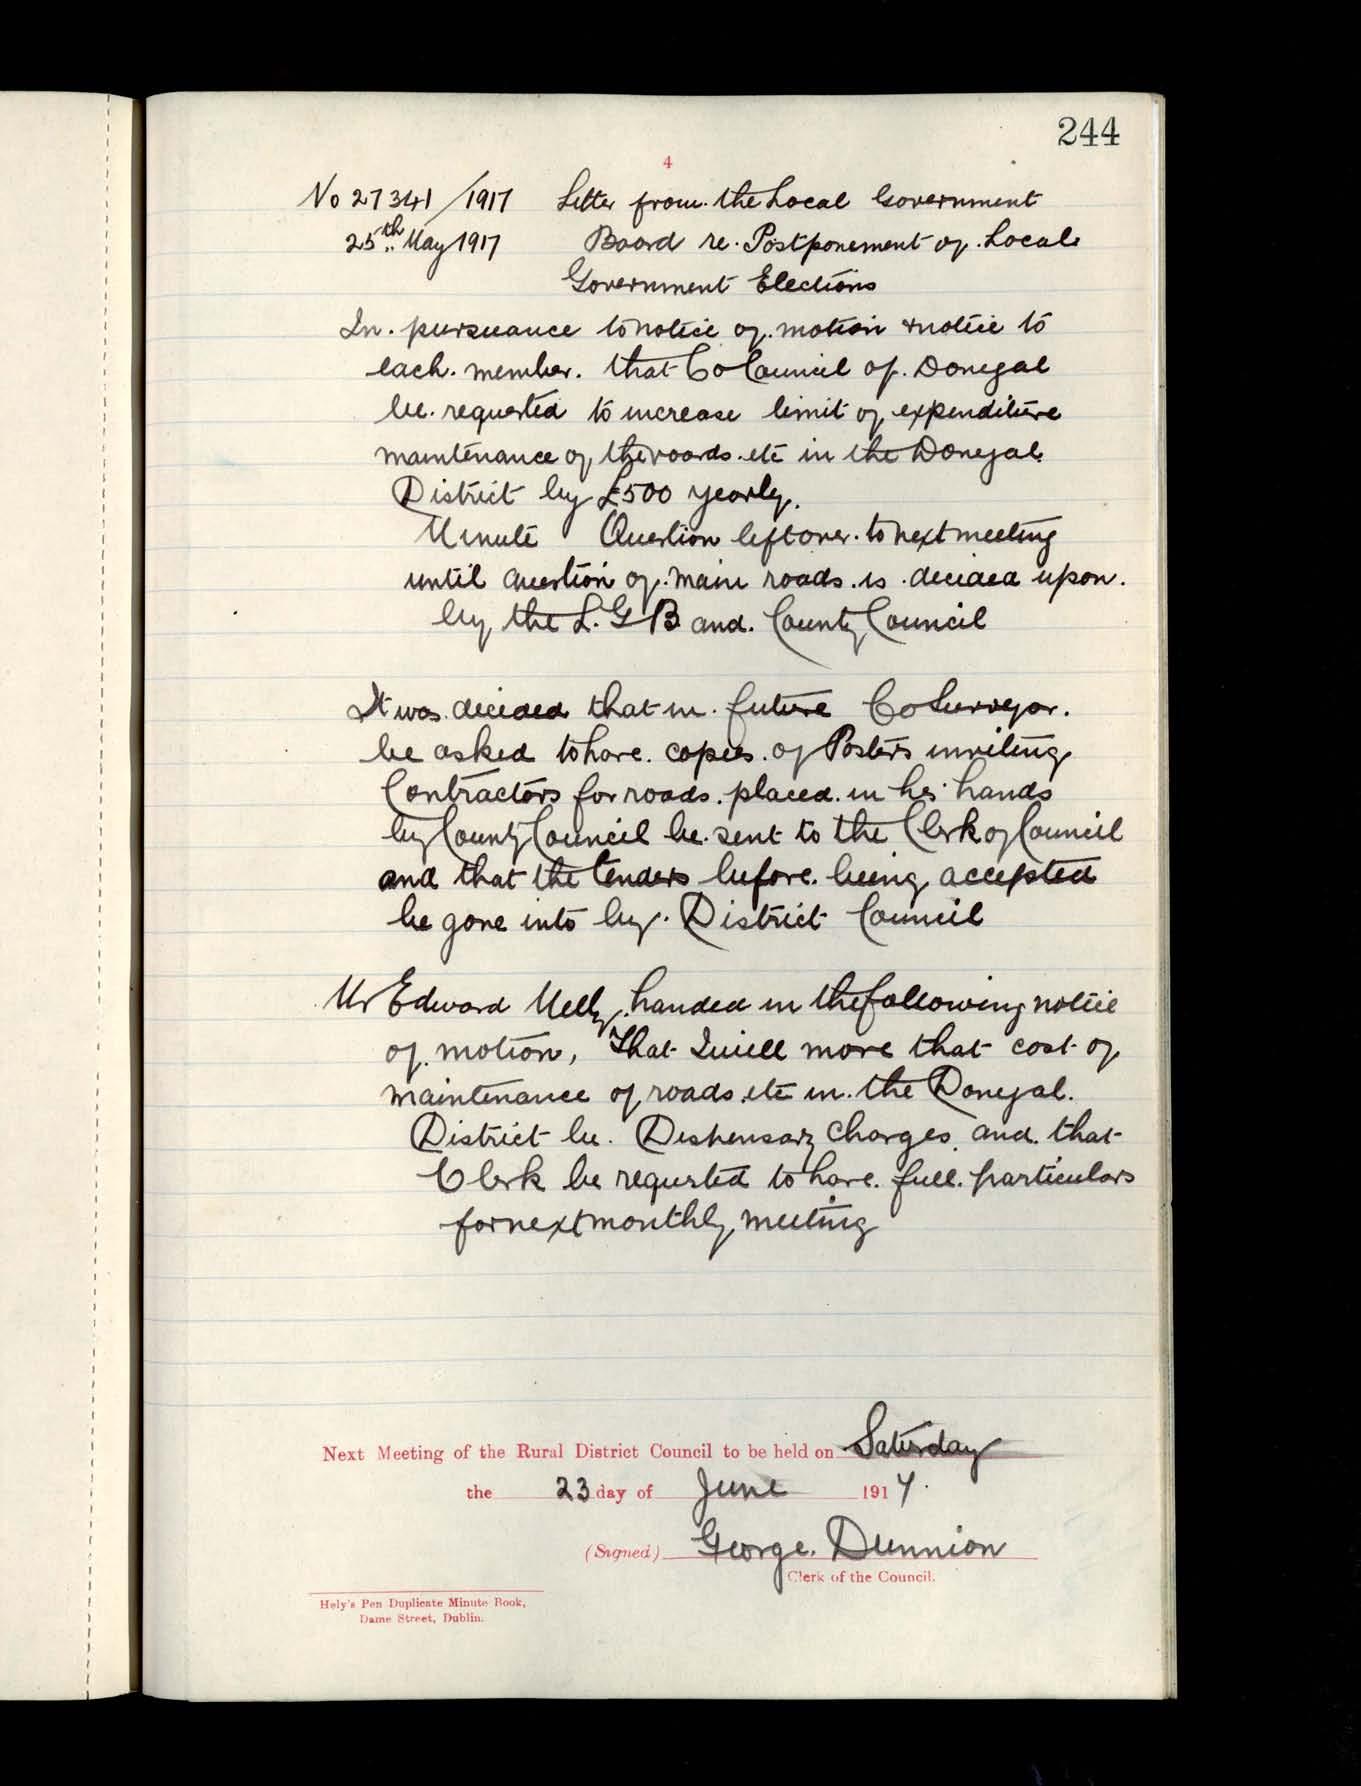 244
4
No 27341/1917 Letter from the Local Government
25th May 1917 Board re. Postponement of Local
Government Elections
In pursuance to notice of motion & notice to
each member. that Co Council of Donegal
be requested to increase limit of expenditure
maintenance of the roads etc in the Donegal
District by £500 yearly.
Minute Question left over to next meeting
until question of main roads is decided upon
by the L. G B and County Council
It was decided that in future Co Surveyor.
be asked to have copies of Posters inviting
Contractors for roads placed in his hands
by County Council be sent to the Clerk of Council
and that the tenders before being accepted
be gone into by District Council
Mr Edward Melly handed in the following notice
of motion, That I will move that cost of
maintenance of roads etc in the Donegal
District be Dispensary Charges and that
Clerk be requested to have full particulars
for next monthly meeting
Next Meeting of the Rural District Council to be held on Saturday
the 23 day of June 1917.
(Signed) George Dunnion
Clerk of the Council.
Hely's Pen Duplicate Minute Book,
Dame Street, Dublin.